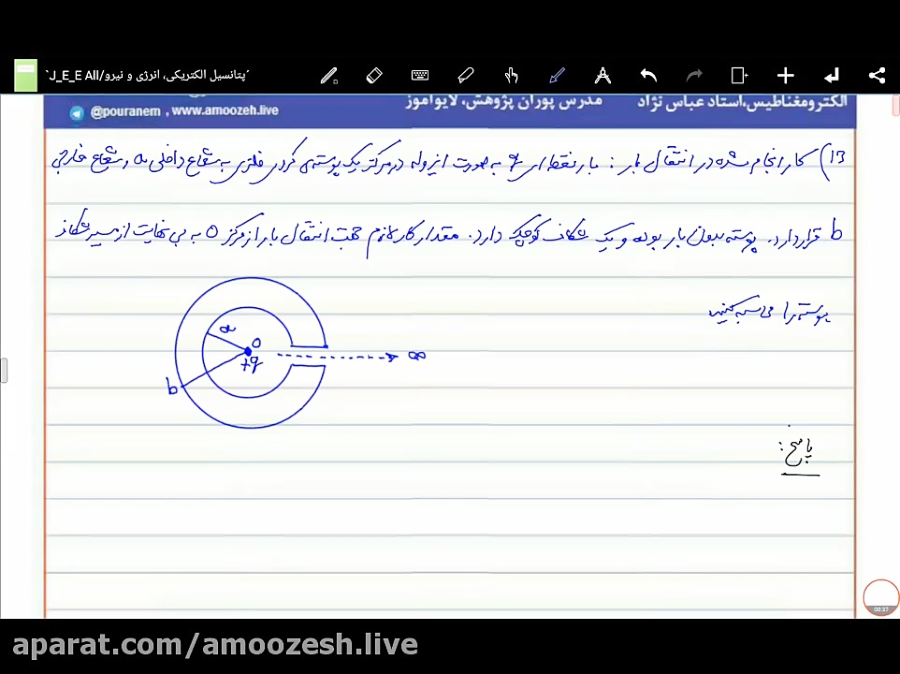 `J_E_E All/پتانسیل الکتریکی، انرژی و نیرو´
@pouranem , www.amoozeh.live
مدرس پوران پژوهش، لایوآموز
الکترومغناطیس،استاد عباس نژاد
13) کار انجام شده در انتقال بار : بار نقطه‌ای q به صورت ایزوله در مرکز یک پوسته‌ی کروی فلزی به شعاع داخلی a و شعاع خارجی
b قرار دارد. پوسته بدون بار بوده و یک شکاف کوچک دارد. مقدار کار لازم جهت انتقال بار از مرکز O به بی نهایت از مسیر شکاف
پوسته را محاسبه کنید.
a
O
+q
∞
b
پاسخ:
00:17
aparat.com/amoozesh.live